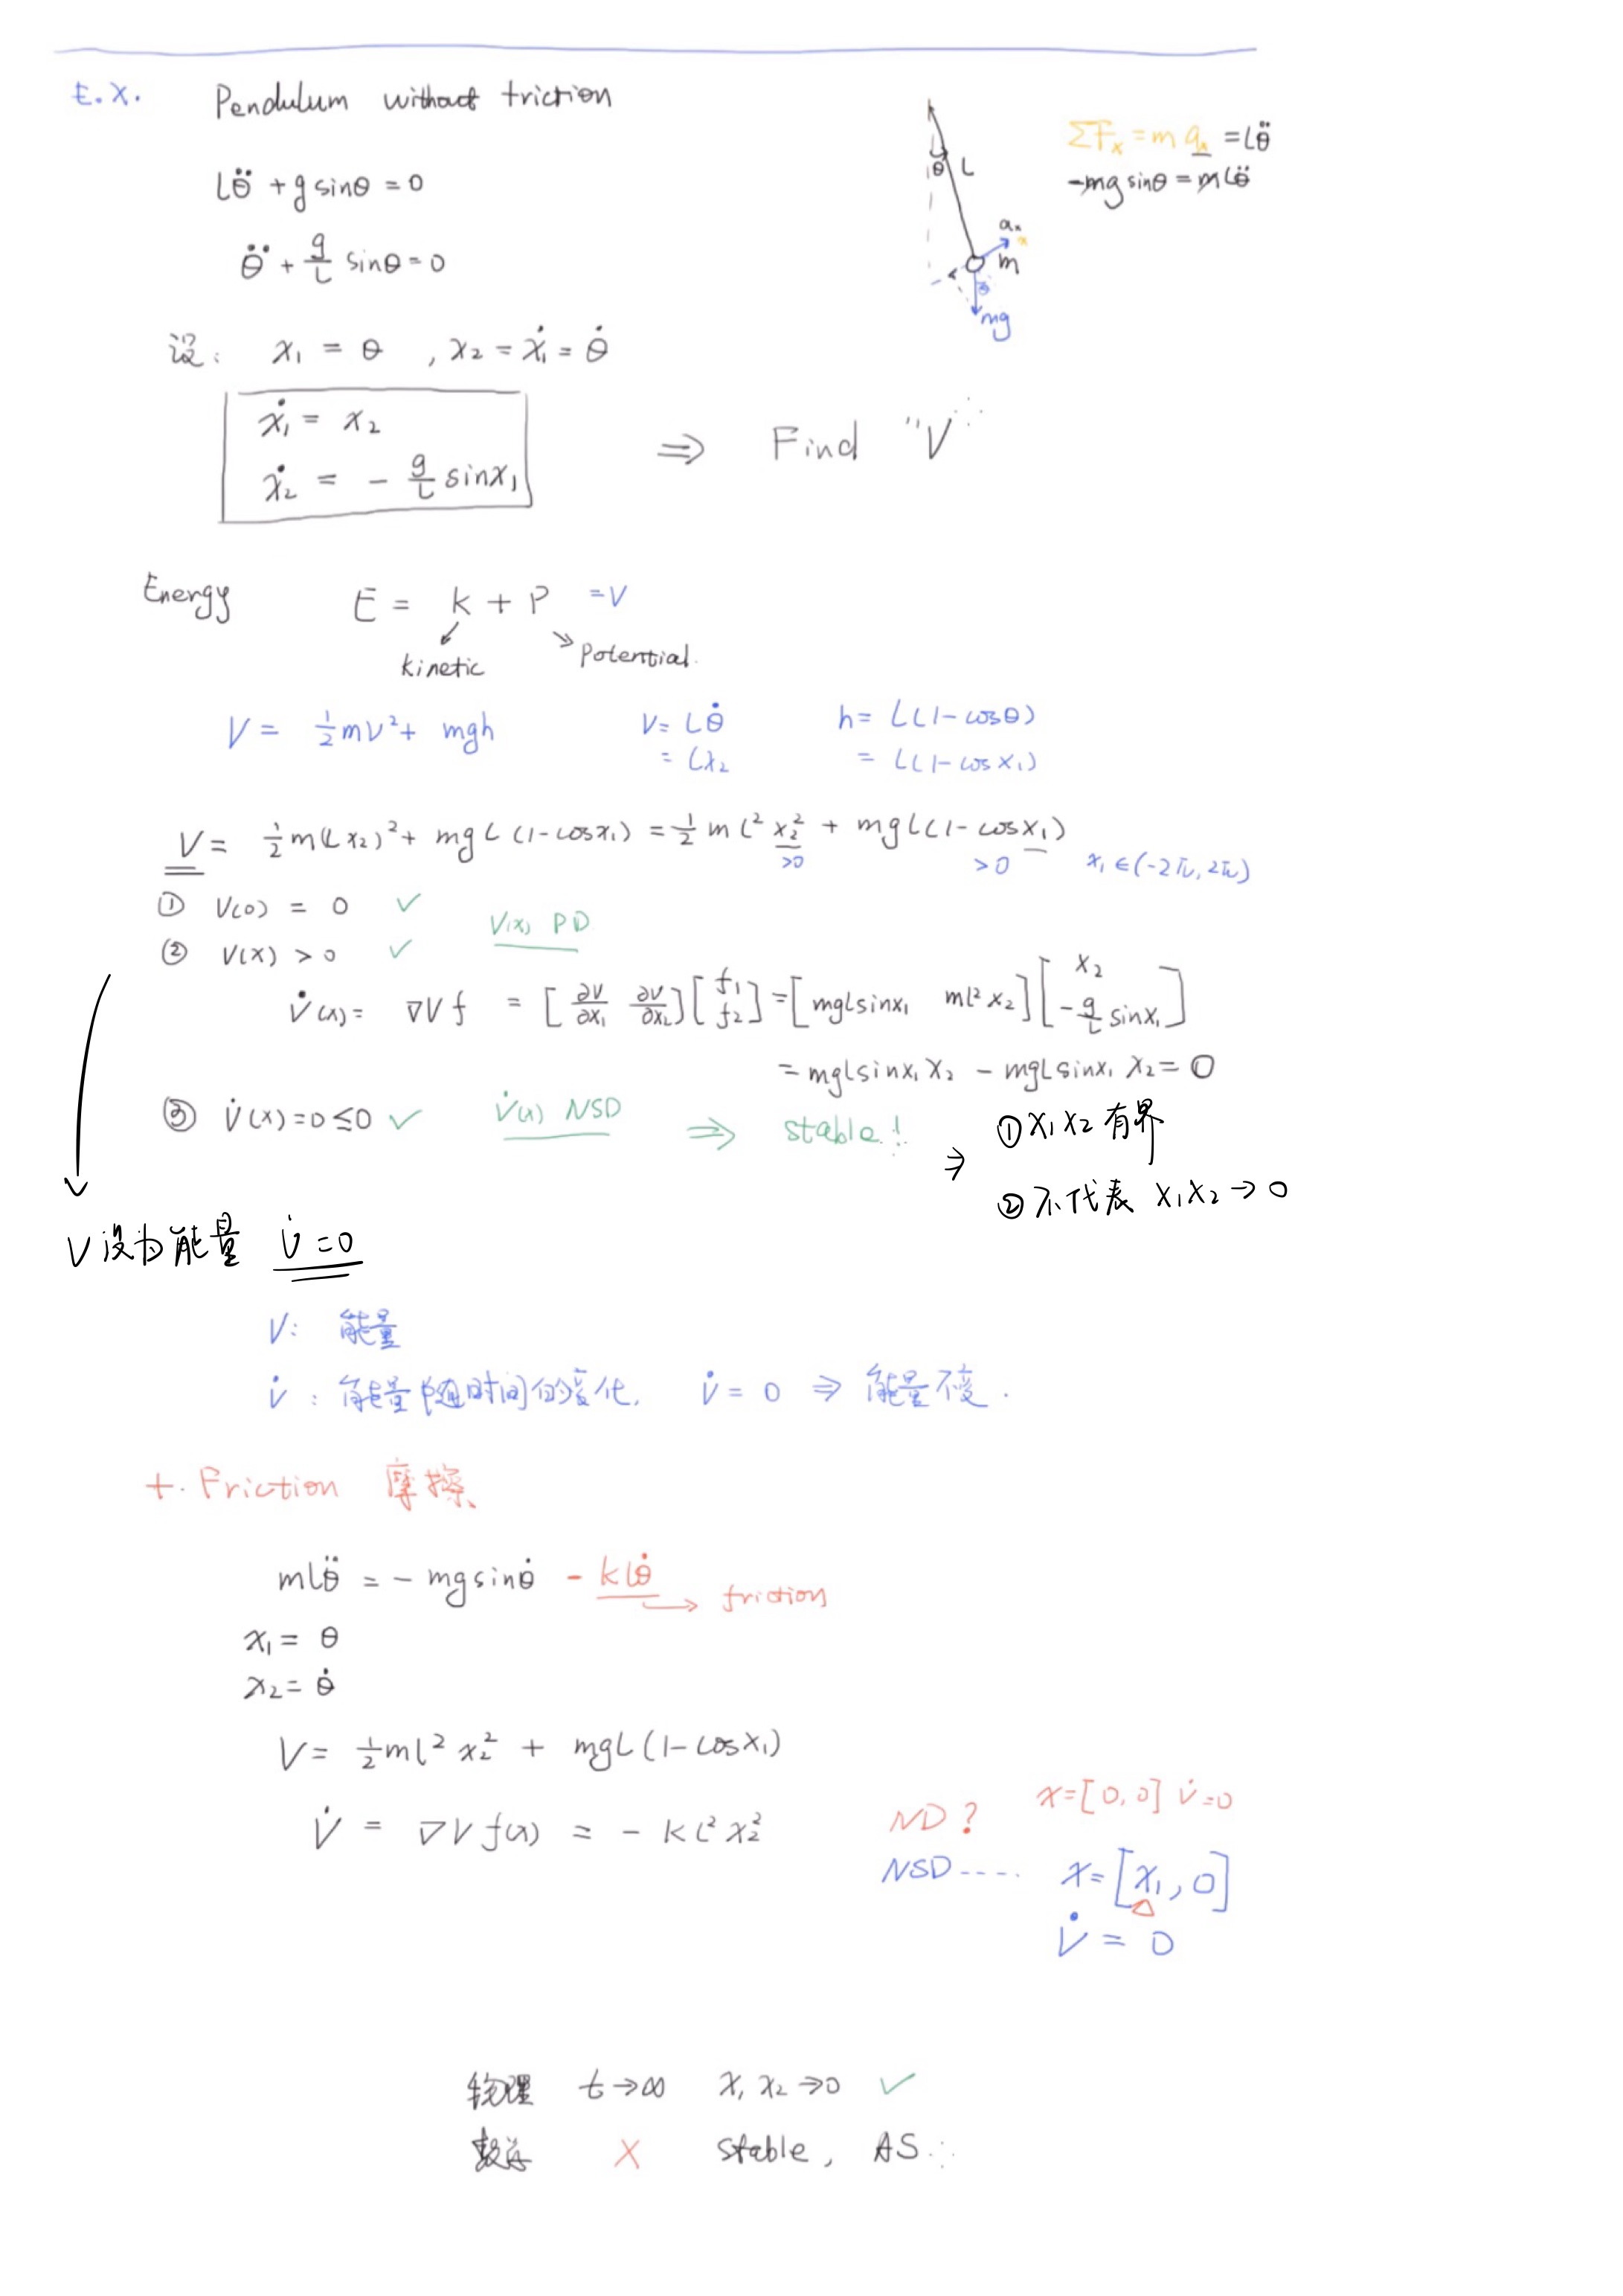 E.X. Pendulum without friction
Lθ̈ + g sinθ = 0
θ̈ + g/L sinθ = 0
ΣFx = m ax = Lθ̈
-mg sinθ = mLθ̈
θ L
m
mg
设: x₁ = θ , x₂ = ẋ₁ = θ̇
ẋ₁ = x₂
ẋ₂ = - g/L sinx₁
⇒ Find "V"
Energy E = K + P = V
kinetic
Potential.
V = ½mv² + mgh v = Lθ̇ h = L(1-cosθ)
= Lx₂ = L(1-cosx₁)
V = ½m(Lx₂)² + mgL(1-cosx₁) = ½mL²x₂² + mgL(1-cosx₁)
>0 >0 x₁∈(-2π, 2π)
① V(0) = 0 ✓
V(x) PD
② V(x) > 0 ✓
V̇(x) = ∇V f = [∂V/∂x₁ ∂V/∂x₂][f₁ f₂] = [mgLsinx₁ mL²x₂][x₂ -g/L sinx₁]
= mgLsinx₁x₂ - mgLsinx₁x₂ = 0
③ V̇(x)=0≤0 ✓ V̇(x) NSD ⇒ stable! ⇒ ①x₁x₂有界
②不代表 x₁x₂→0
V设为能量 V̇=0
V: 能量
V̇: 能量随时间的变化, V̇ = 0 ⇒ 能量不变.
+. Friction 摩擦
mLθ̈ = - mgsinθ̇ - kLθ̇ → friction
x₁ = θ
x₂ = θ̇
V = ½mL²x₂² + mgL(1-cosx₁)
V̇ = ∇V f(x) = - kL²x₂²
ND? x=[0,0] V̇=0
NSD---- x=[x₁,0]
V̇ = 0
物理 t→∞ x₁x₂→0 ✓
数学 × stable, AS